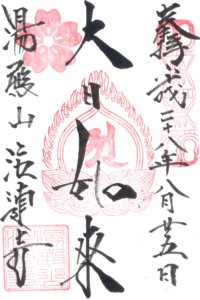 奉拝 平成二十八年八月廿五日
大日如來
湯殿山 注連寺